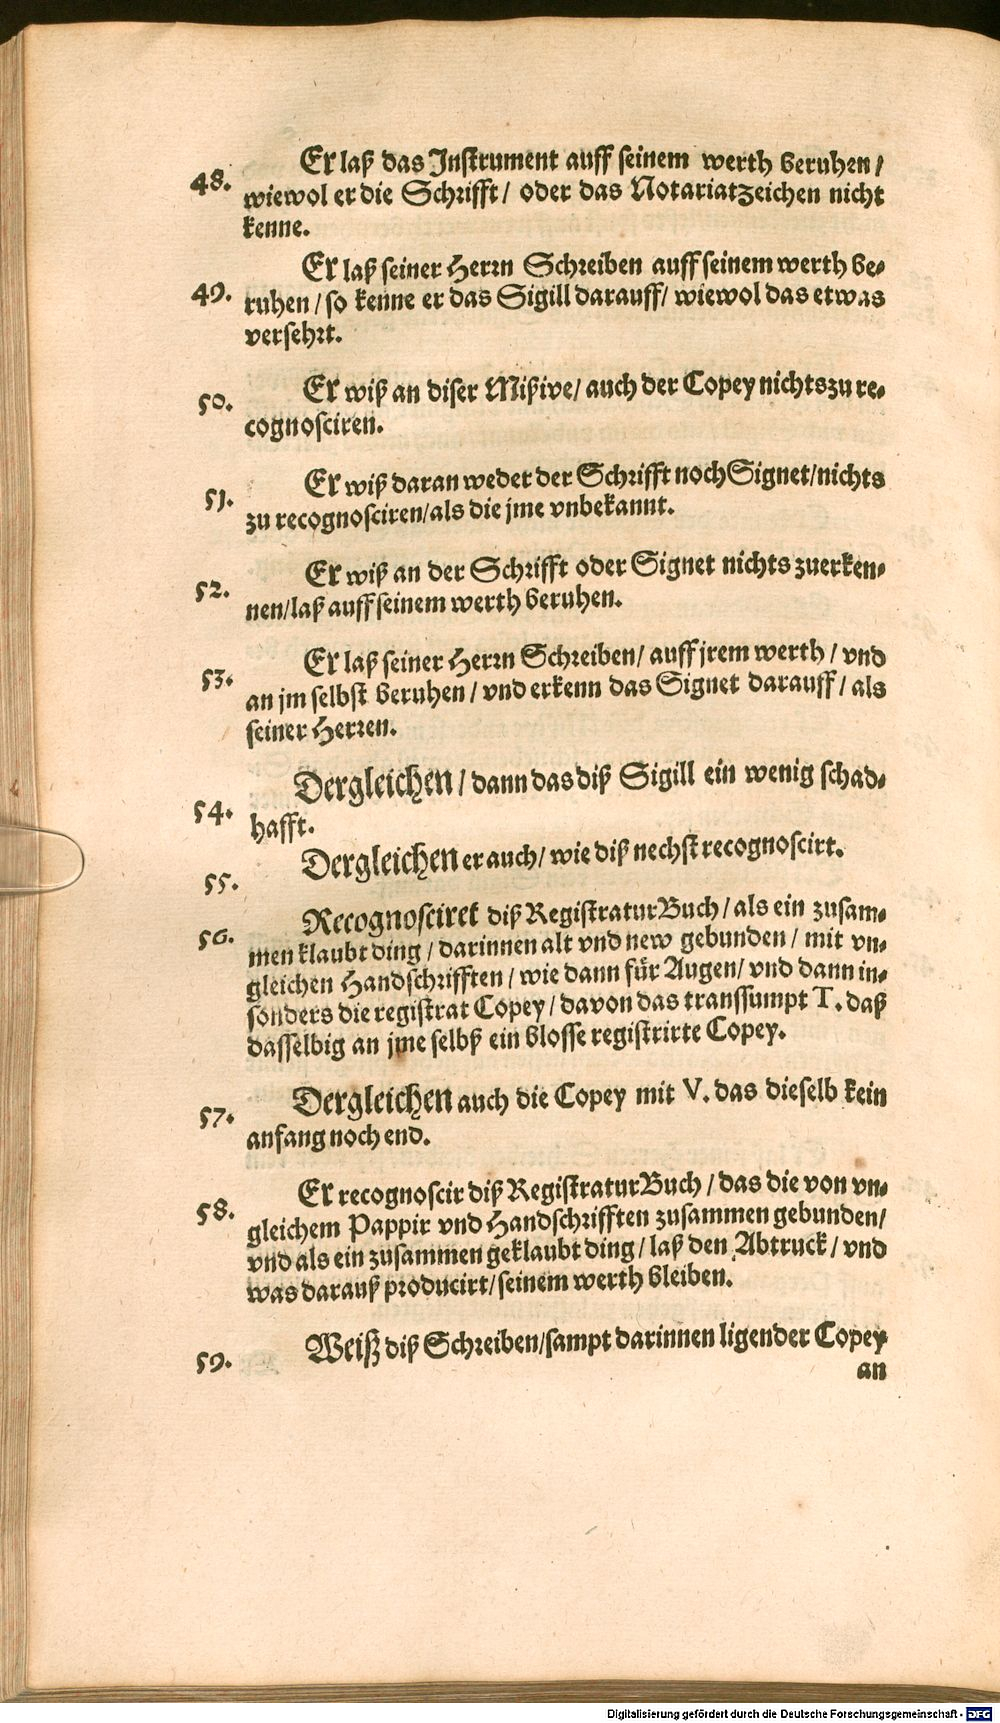 Er laß das Instrument auff seinem werth beruhen /
48. wiewol er die Schrifft / oder das Notariatzeichen nicht
kenne.
Er laß seiner Herrn Schreiben auff seinem werth be⸗
49. ruhen / so kenne er das Sigill darauff / wiewol das etwas
versehrt.
Er wiß an diser Mißive / auch der Copey nichts zu re⸗
50. cognosciren.
Er wiß daran weder der Schrifft noch Signet / nichts
51. zu recognosciren / als die jme vnbekannt.
Er wiß an der Schrifft oder Signet nichts zuerken⸗
52. nen / laß auff seinem werth beruhen.
Er laß seiner Herrn Schreiben / auff jrem werth / vnd
53. an jm selbst beruhen / vnd erkenn das Signet darauff / als
seiner Herren.
Dergleichen / dann das diß Sigill ein wenig schad⸗
54. hafft.
Dergleichen er auch / wie diß nechst recognoscirt.
55.
Recognosciret diß RegistraturBuch / als ein zusam⸗
56. men klaubt ding / darinnen alt vnd new gebunden / mit vn⸗
gleichen Handschrifften / wie dann für Augen / vnd dann in⸗
sonders die registrat Copey / davon das transsumpt T. daß
dasselbig an jme selbß ein blosse registrirte Copey.
Dergleichen auch die Copey mit V. das dieselb kein
57. anfang noch end.
Er recognoscir diß RegistraturBuch / das die von vn⸗
58. gleichem Pappir vnd Handschrifften zusammen gebunden /
vnd als ein zusammen geklaubt ding / laß den Abtruck / vnd
was darauß producirt / seinem werth bleiben.
Weiß diß Schreiben / sampt darinnen ligender Copey
59.
an
Digitalisierung gefördert durch die Deutsche Forschungsgemeinschaft - DFG